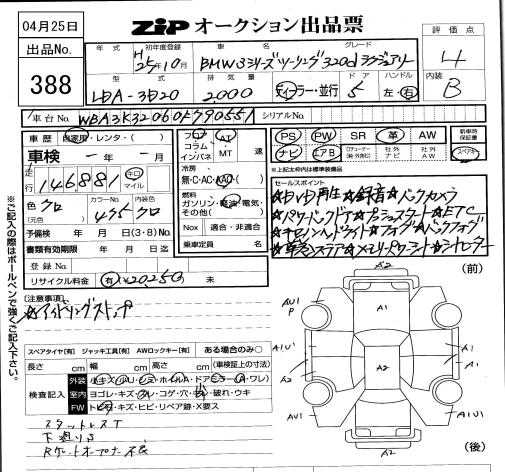 04月25日
ZIP オークション出品票
出品No.
388
年式
初年度登録
車名
グレード
H25年10月
BMW3シリーズツーリング320dラグジュアリー
型式
排気量
ドア
ハンドル
LDA-3D20
2,000
ディーラー・並行
5
左・右
評価点
4
内装
B
車台No.
WBA3K32060F790551
シリアルNo.
車歴
自家用・レンタ・( )
車検
年
月
走行
146,881
キロ
マイル
色
クロ
(元色)
カラーNo.
475
内装色
クロ
予備検
年 月 日(3・8)No.
書類有効期限
年 月 日迄
登録No.
リサイクル料金
有
¥20250
フロア
コラム
インパネ
AT
MT
速
冷房
無・C・AC・AAC
燃料
ガソリン・軽油・電気・
その他( )
Nox
適合・非適合
乗車定員
名
PS
PW
SR
革
AW
ナビ
エアB
社外
ナビ
社外
AW
新車時
保証書
スペアキー
※上記太枠内は標準装備品
セールスポイント
☆DVD再生☆録音☆バックカメラ
☆パワーバックドア☆プッシュスタート☆ETC
☆キセノンヘッドライト☆フォグ☆バックフォグ
☆革巻ステア☆メモリーパワーシート☆シートヒーター
注意事項
☆アイドリングストップ
※ご記入の際はボールペンで強くご記入下さい。
スペアタイヤ【有】 ジャッキ工具【有】 AWロックキー【有】
ある場合のみ○
長さ cm 幅 cm 高さ cm (車検証上の寸法)
検査記入
外装
小キズ・ハリ・シミ・ホイルA・ドアミラー(A・ワレ)
室内
ヨゴレ・キズ・スレ・コゲ・穴・シミ・破れ・ウキ
FW
トビ石・キズ・ヒビ・リペア跡・X要ス
スタッドレスT
下廻りS
Rゲートオープナー不良
(前)
A2
AU1
P
A1
A1U1
A1
A1U1
A2
A2
A1
AU1
A1U1
A2
(後)